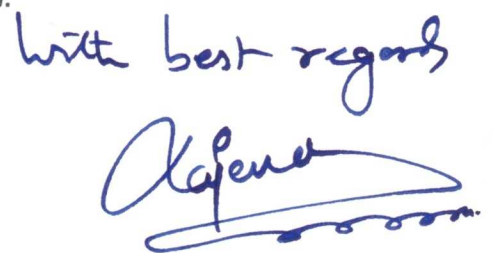 With best regards